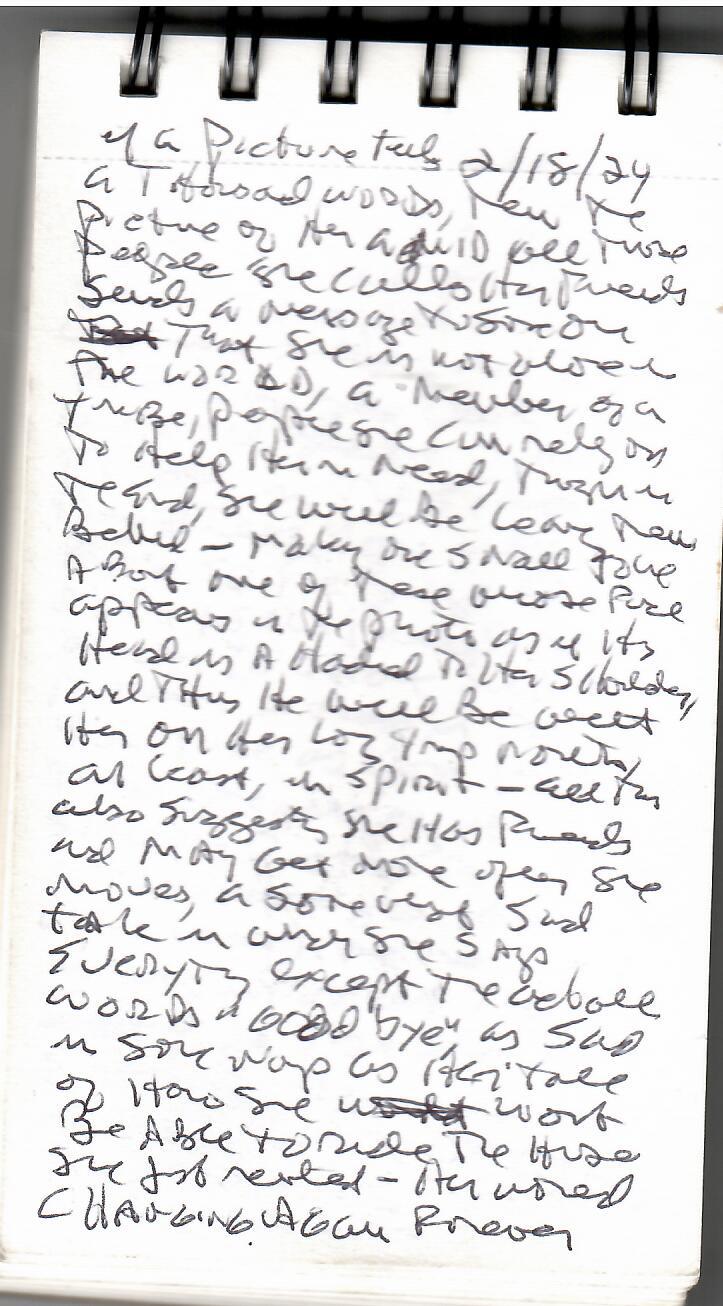 if a Picture tells 2/18/24
a Thousad words, Then The
Picture of Her amid all those
People she calls Her Friends
Sends a message to someone
That she is not alone in
The World, a member of a
Tribe, People she can rely on
To Help Her in Need, Though in
The End, she will be leaving Them
Behind – making one small joke
About one of These whose Face
appears in the photo as if Its
Head is Attached To Her Shoulder,
and Thus He will Be with
Her on Her long Trip North,
at least, in Spirit – all This
also suggests she Has Friends
and May Get more after she
moves, a somewhat Sad
talk in which she Says
Everything except The actual
words "GOODbye", as Sad
in some ways as Her Tale
of How she wont
Be Able to make The House
she just rented – Her world
CHANGING Again Forever